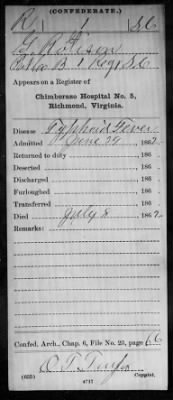 (CONFEDERATE.)
R 1 S C
Co. B 1 Regt S.C.
Appears on a Register of
Chimborazo Hospital No. 5,
Richmond, Virginia.
Disease Typhoid Fever
Admitted June 29 , 1862.
Returned to duty , 186 .
Deserted , 186 .
Discharged , 186 .
Furloughed , 186 .
Transferred , 186 .
Died July 8 , 1862.
Remarks:
Confed. Arch., Chap. 6, File No. 23, page 66
(635) 4717 Copyist.